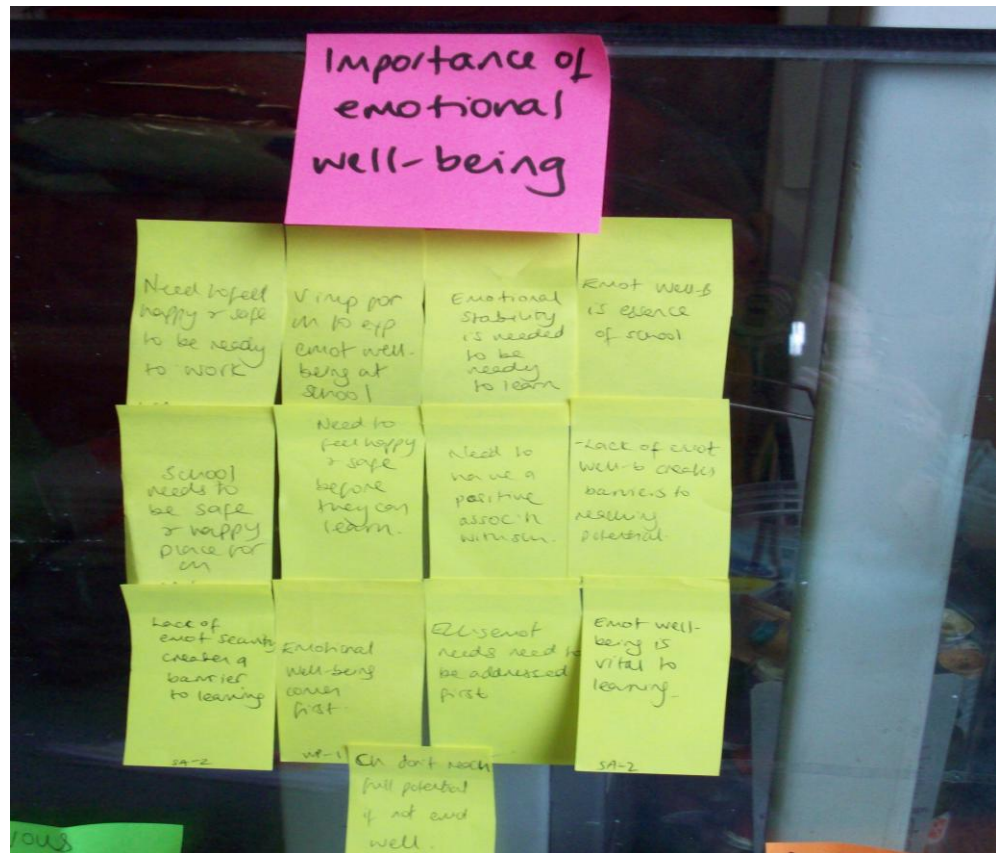 Importance of
emotional
well-being
Need to feel
happy & safe
to be ready
to work
V imp for
ch to exp
emot well-
being at
school
Emotional
stability
is needed
to be
ready
to learn
Emot well-b
is essence
of school
School
needs to
be safe
& happy
place for
ch
Need to
feel happy
& safe
before
they can
learn.
Need to
have a
positive
associtn
with sch.
-Lack of emot
well-b creates
barriers to
reaching
potential.
Lack of
emot security
creates a
barrier
to learning
SA-2
Emotional
well-being
comes
first.
WP-1
emot
needs need to
be addressed
first
Emot well-
being is
vital to
learning
SA-2
Ch don't reach
full potential
if not emot
well.